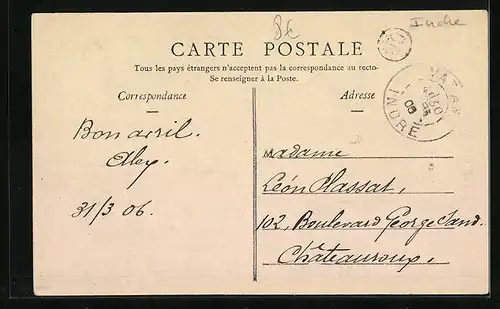 8€
Indre
CARTE POSTALE
Tous les pays étrangers n'acceptent pas la correspondance au recto.
Se renseigner à la Poste.
Correspondance
Adresse
INDRE
06
Bon avril.
Aley.
31/3 06.
Madame
Léon Massat,
102, Boulevard George Sand.
Châteauroux,